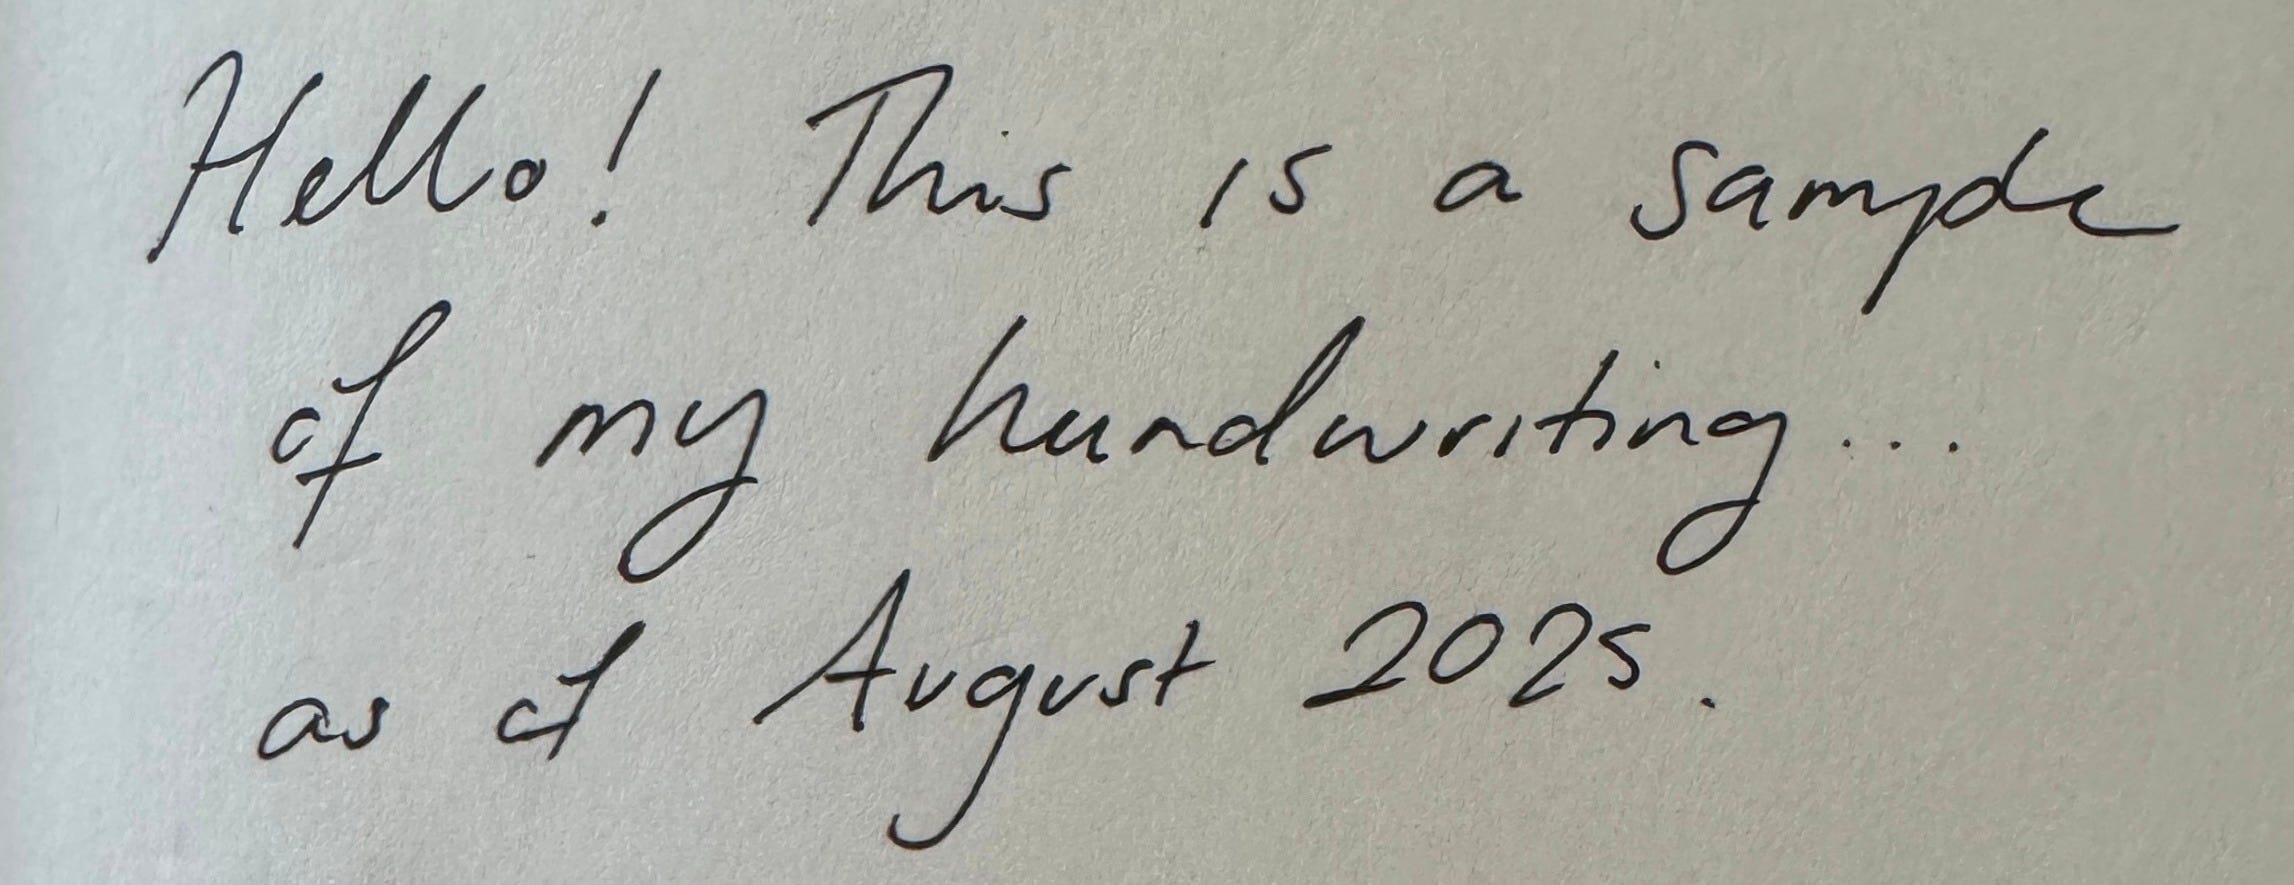 Hello! This is a sample
of my handwriting...
as of August 2025.